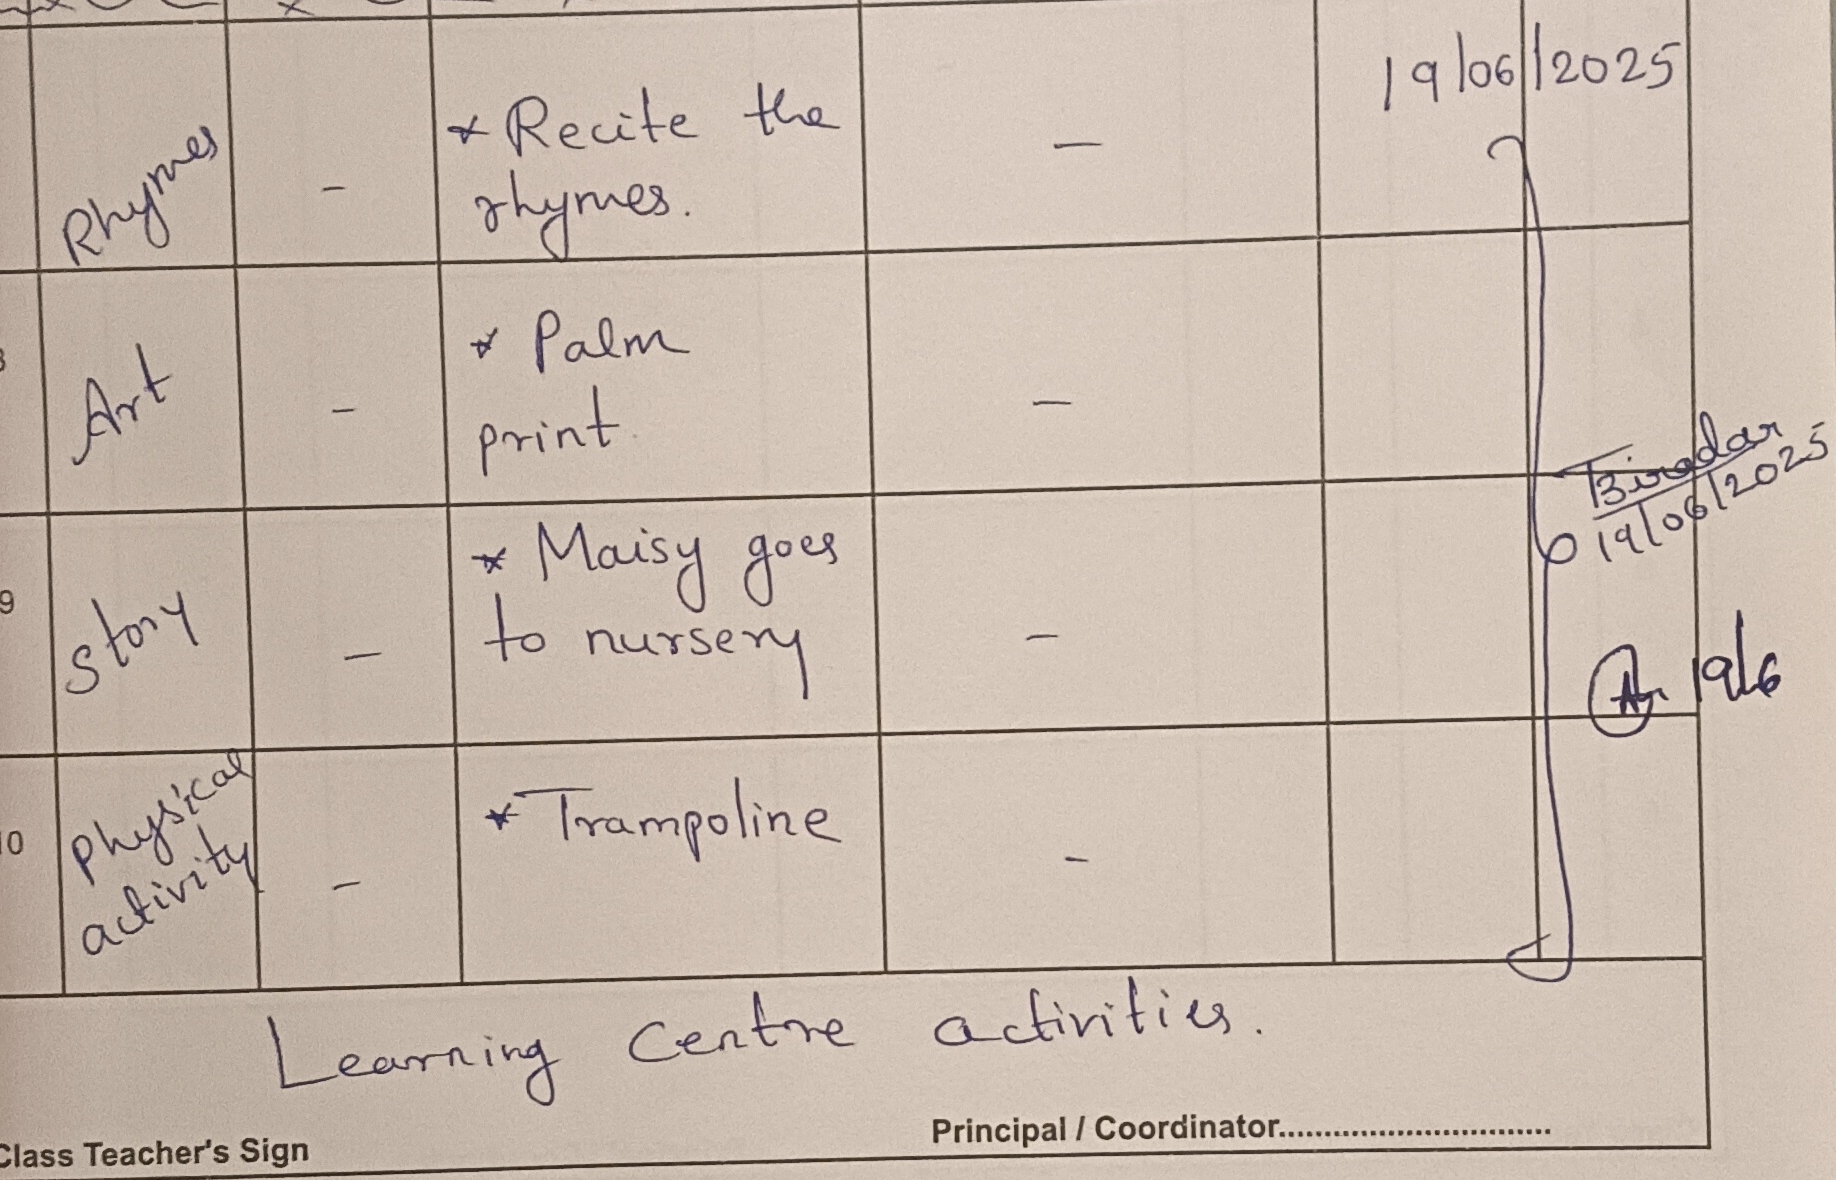 19/06/2025
Rhymes - * Recite the -
rhymes.
Art - * Palm -
print
Biradar
19/06/2025
9 Story - * Maisy goes -
to nursery
19/6
10 Physical - * Trampoline -
activity
Learning Centre activities.
Class Teacher's Sign Principal / Coordinator..............................